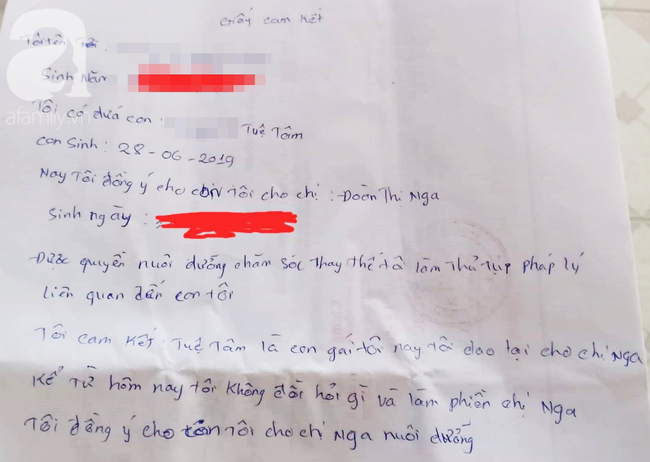 Giấy cam kết
Tôi tên
Sinh năm
Tôi có đứa con : Tuệ Tâm
con sinh : 28 - 06 - 2019
Nay tôi đồng ý cho con tôi cho chị : Đoàn Thị Nga
Sinh ngày :
Được quyền nuôi dưỡng chăm sóc thay thế làm thủ tục pháp lý
liên quan đến con tôi
Tôi cam kết Tuệ Tâm là con gái tôi nay tôi dao lại cho chị Nga
Kể từ hôm nay tôi không đồi hỏi gì và làm phiền chị Nga
Tôi đồng ý cho con tôi cho chị Nga nuôi dưỡng
afamily.vn